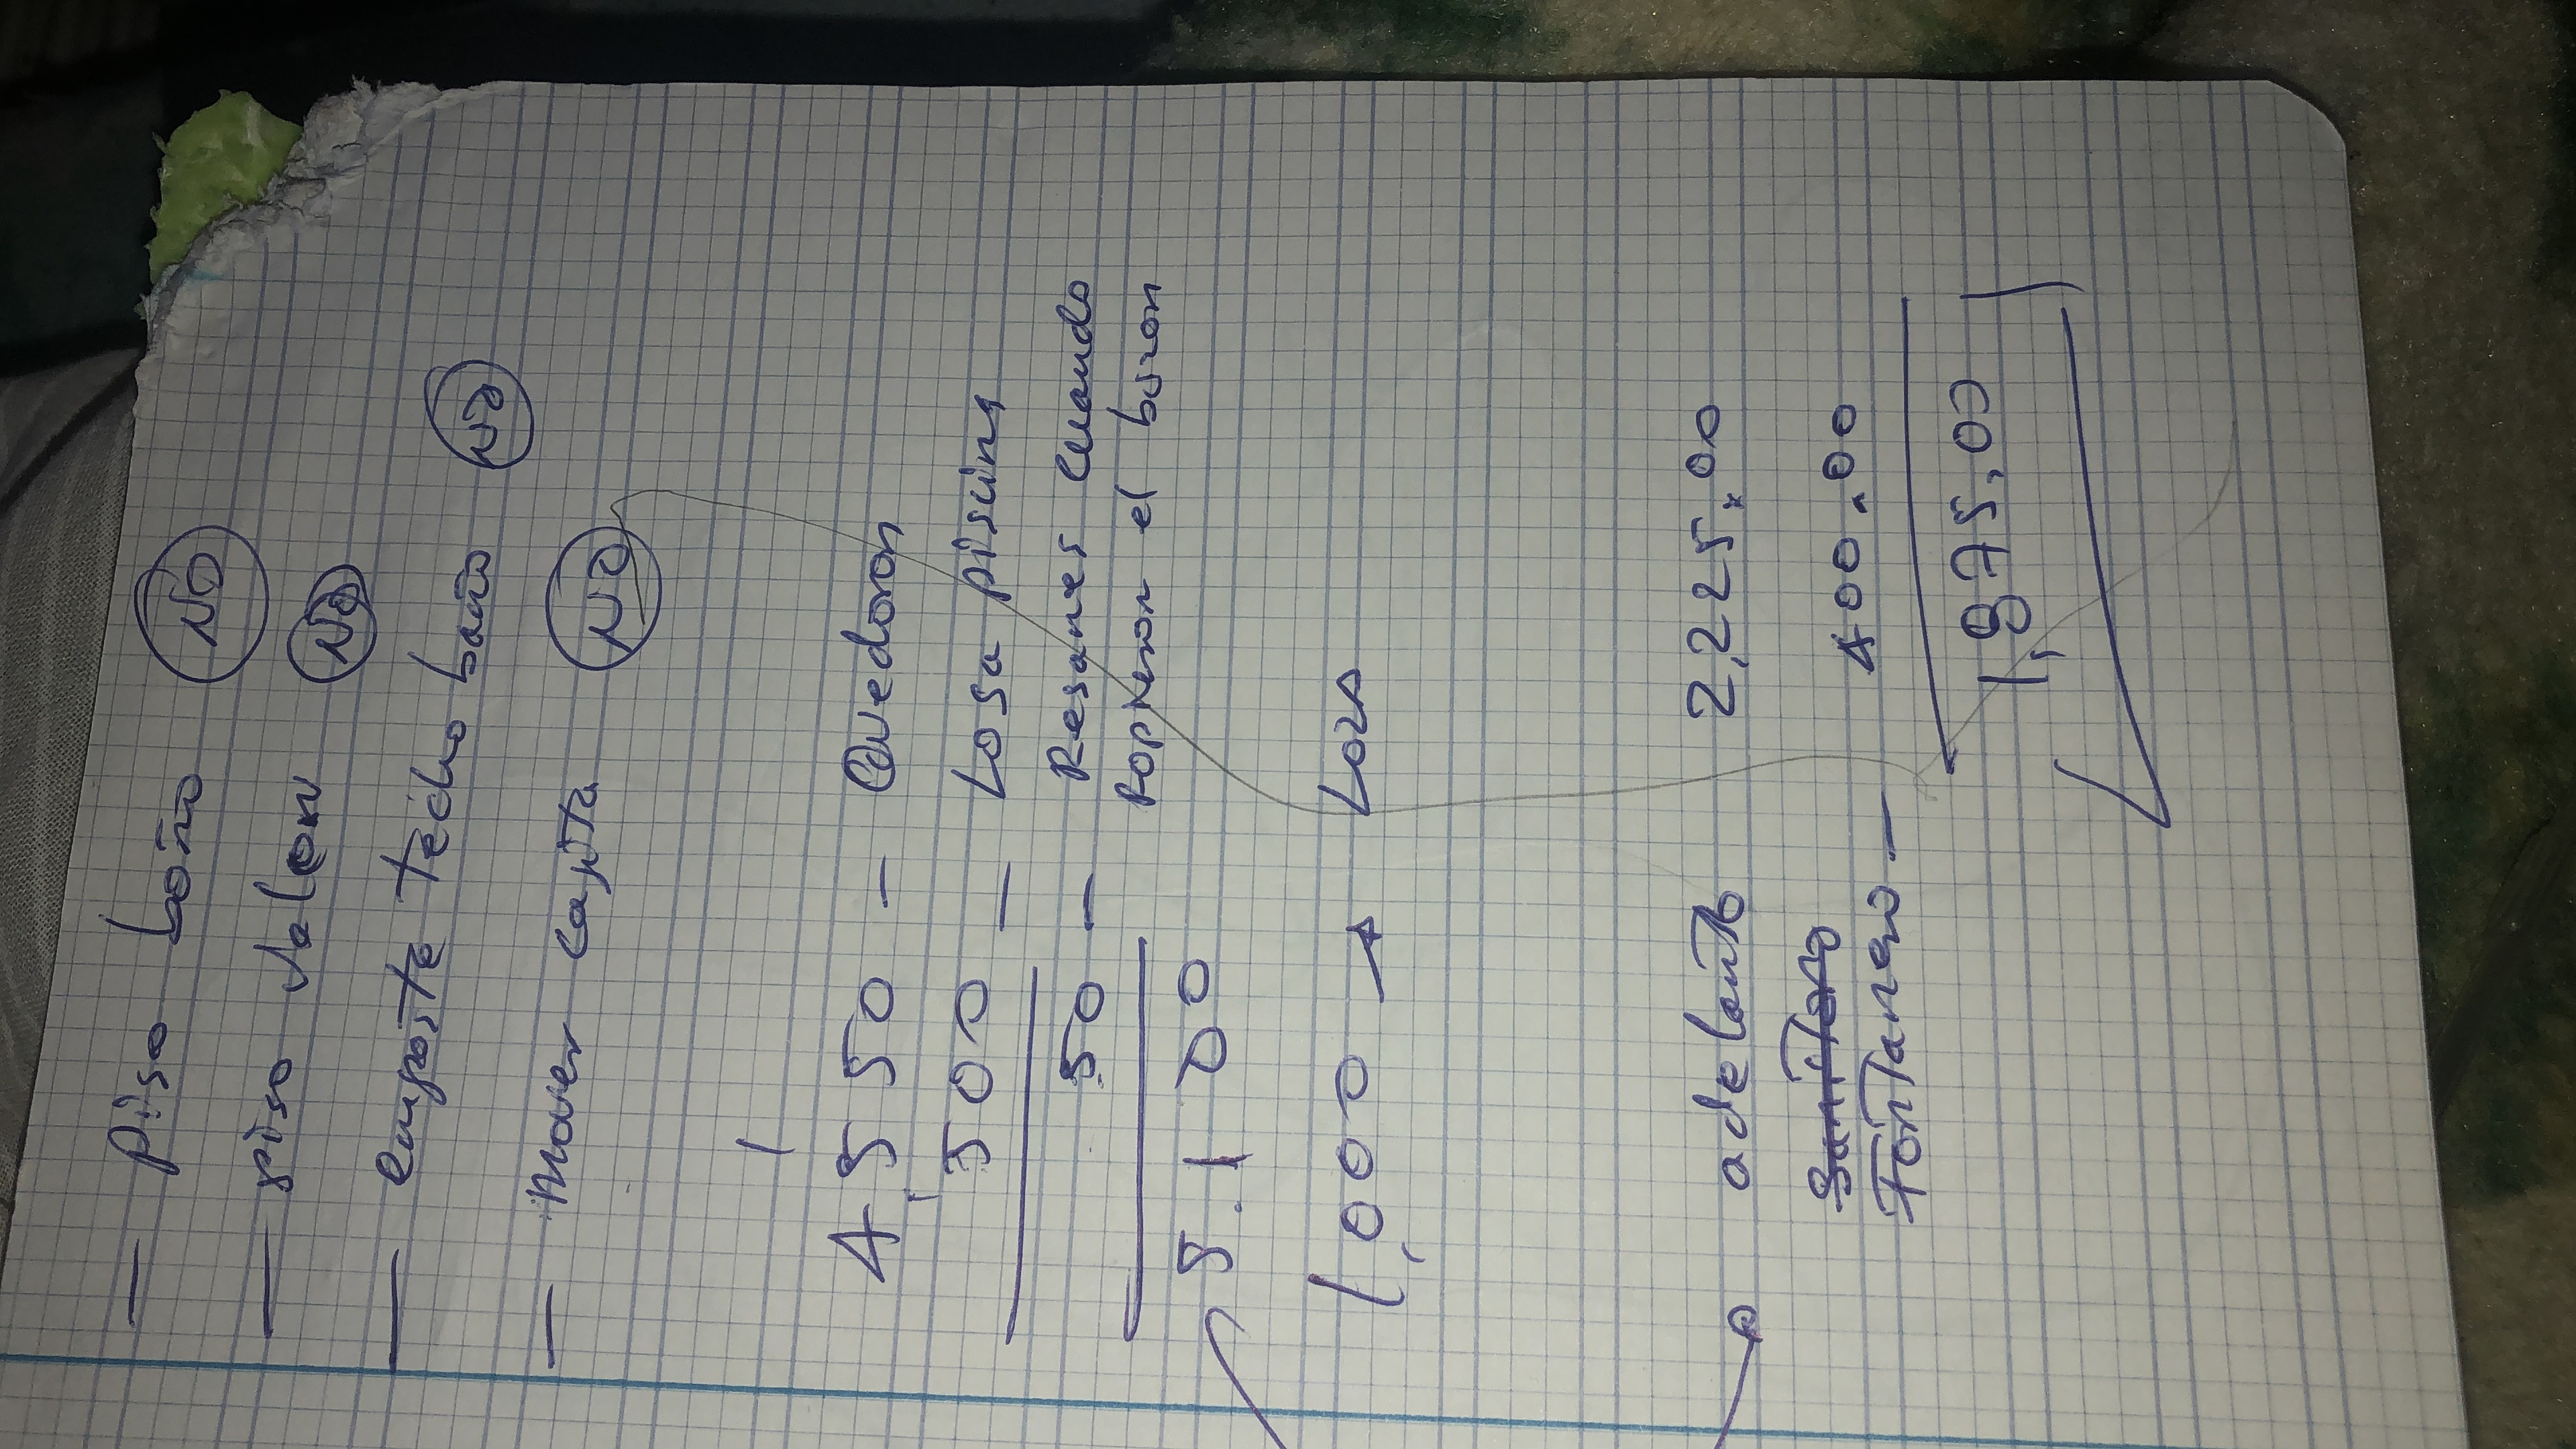 — Piso baño NO
— piso Salon NO
— emposte techo baño NO
— Mover cajita NO
1
4,550 — Quedaron
500 — Losa piscina
50 — Resanes cuando
el buzon
5.100
1,000 → Loza
adelanto 2,225.00
Sanitario 400.00
Fontanero —
1,875,00